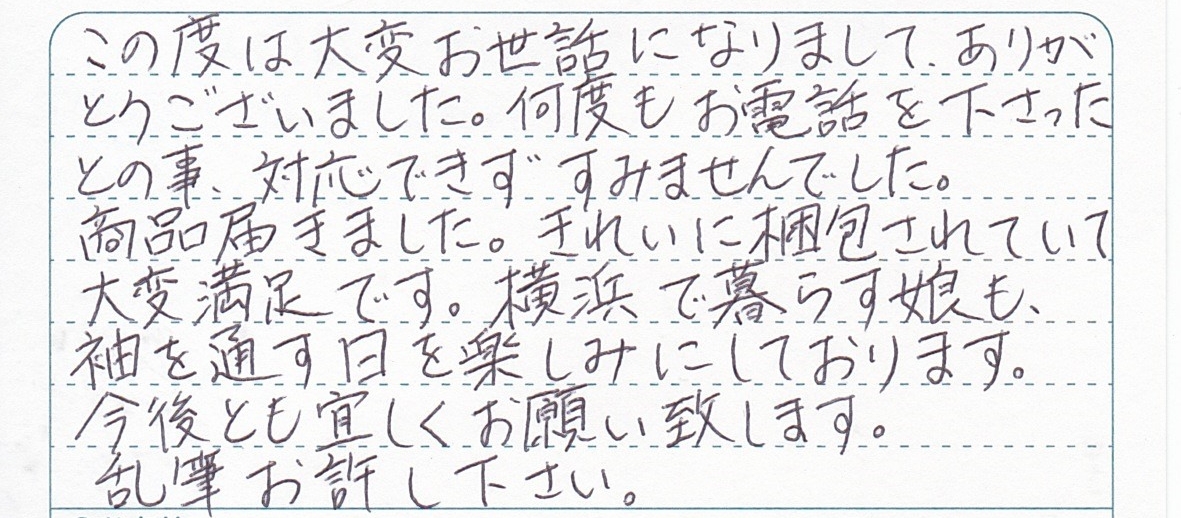 この度は大変お世話になりまして、ありが
とうございました。何度もお電話を下さった
との事、対応できず すみませんでした。
商品届きました。きれいに梱包されていて
大変満足です。横浜で暮らす娘も、
袖を通す日を楽しみにしております。
今後とも宜しくお願い致します。
乱筆お許し下さい。